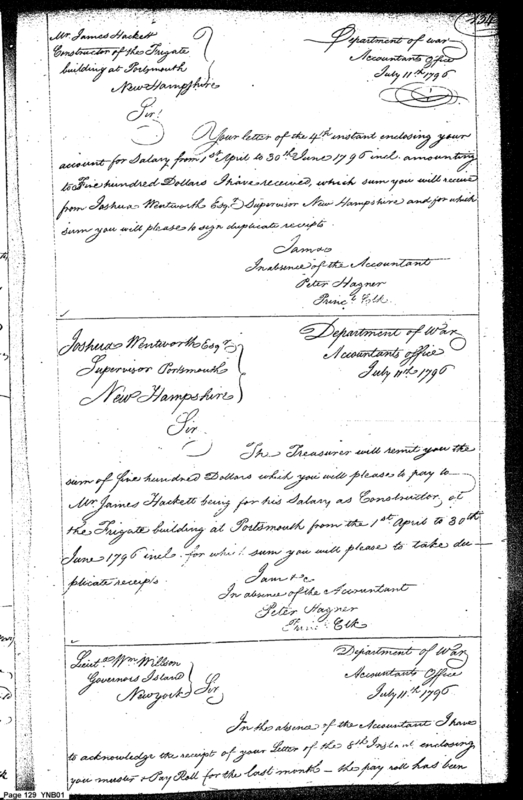 234
Mr. James Hackett
Constructor of the Frigate
building at Portsmouth
New Hampshire
Department of War
Accountants Office
July 11th 1796
Sir!
Your letter of the 4th instant enclosing your
account for Salary from 1st April to 30th June 1796 incl. amounting
to Five hundred Dollars I have received, which sum you will receive
from Joshua Wentworth Esqr Supervisor New Hampshire and for which
sum you will please to sign duplicate receipts.
I am &c
In absence of the Accountant
Peter Hagner
Princl Clk.
Joshua Wentworth Esqr
Supervisor Portsmouth
New Hampshire
Department of War
Accountants office
July 11th 1796
Sir
The Treasurer will remit you the
sum of five hundred Dollars which you will please to pay to
Mr. James Hackett being for his Salary as Constructor, at
the Frigate building at Portsmouth from the 1st April to 30th
June 1796 incl. for which sum you will please to take du-
plicate receipts.
I am &c
In absence of the Accountant
Peter Hagner
Princl Clk
Lieut Wm Willson
Governors Island
New york
Sir
Department of War
Accountants Office
July 11th 1796
In the absence of the Accountant I have
to acknowledge the receipt of your Letter of the 8th Instant enclosing
you muster & Pay Roll for the last month – the pay roll has been
Page 129 YNB01